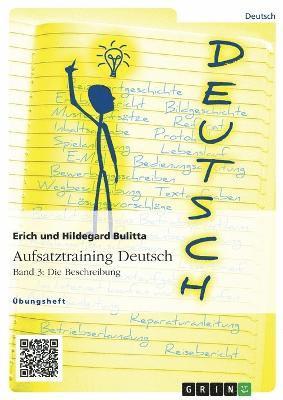 Deutsch
DEUTSCH
Reportgeschichte
Bildgeschichte
Inhaltsangabe
Protokoll
Lebenslauf
E-Mail
Bedienungsanleitung
Bewerbungsschreiben
Wegbeschreibung
Lösungsvorschläge
Erich und Hildegard Bulitta
Aufsatztraining Deutsch
Band 3: Die Beschreibung
Übungsheft
Reparaturanleitung
Betriebserkundung
Reisebericht
GRIN